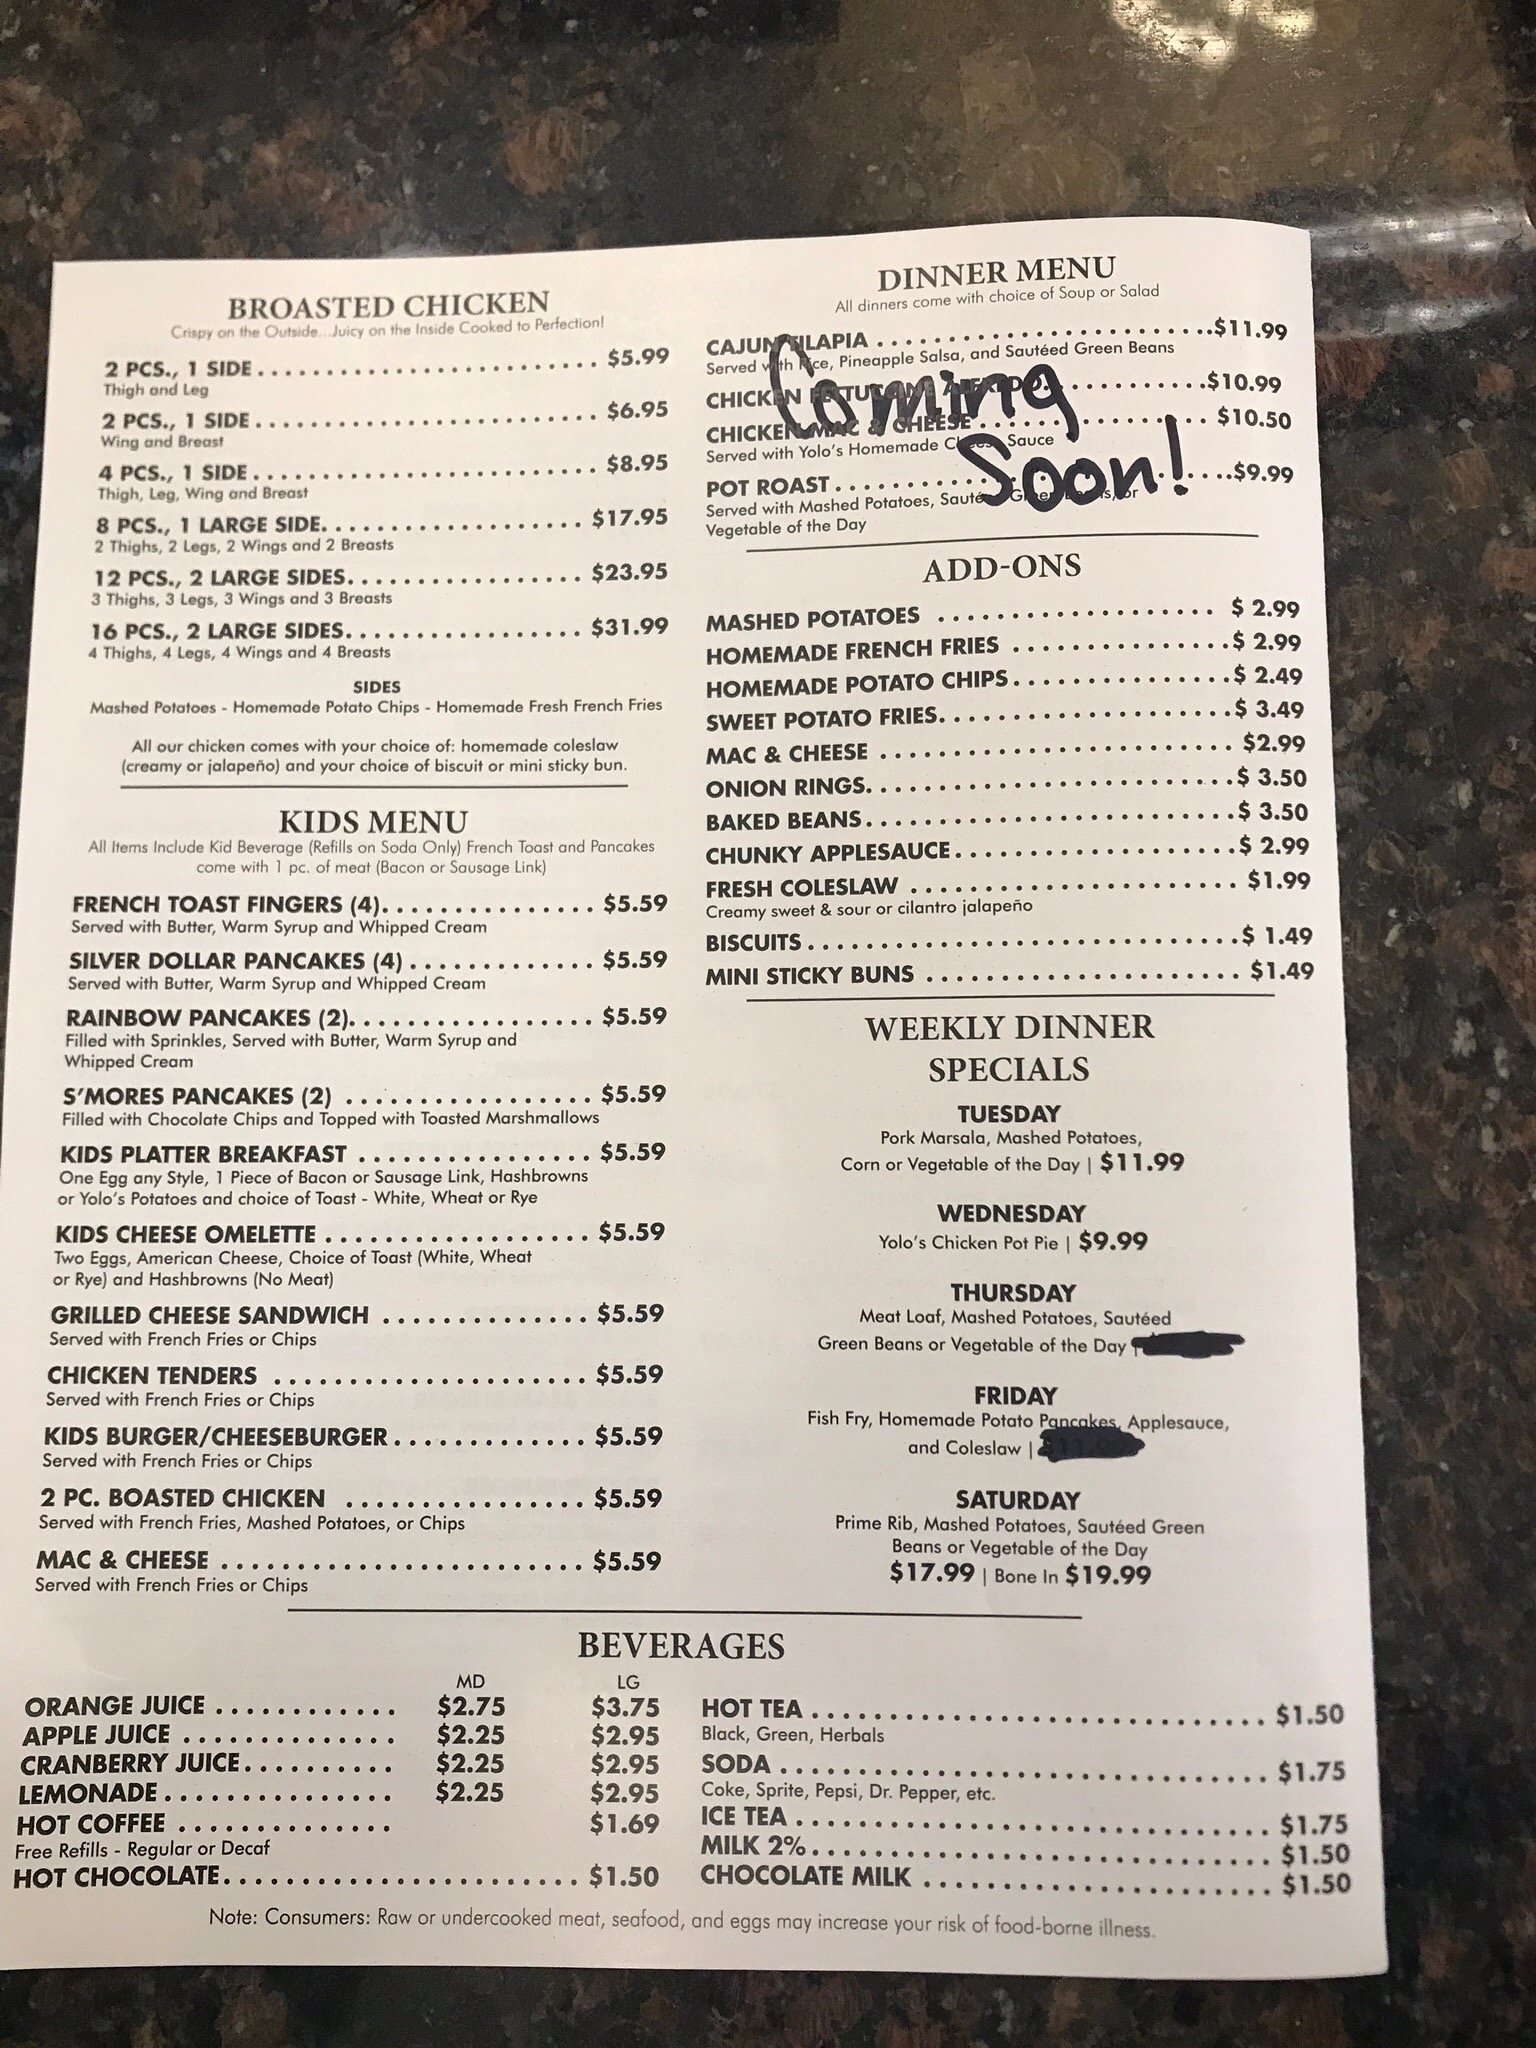 BROASTED CHICKEN
Crispy on the Outside...Juicy on the Inside Cooked to Perfection!
2 PCS., 1 SIDE . . . . . . . . . . $5.99
Thigh and Leg
2 PCS., 1 SIDE . . . . . . . . . . $6.95
Wing and Breast
4 PCS., 1 SIDE . . . . . . . . . . $8.95
Thigh, Leg, Wing and Breast
8 PCS., 1 LARGE SIDE. . . . . . . . . . $17.95
2 Thighs, 2 Legs, 2 Wings and 2 Breasts
12 PCS., 2 LARGE SIDES. . . . . . . . . . $23.95
3 Thighs, 3 Legs, 3 Wings and 3 Breasts
16 PCS., 2 LARGE SIDES. . . . . . . . . . $31.99
4 Thighs, 4 Legs, 4 Wings and 4 Breasts
SIDES
Mashed Potatoes - Homemade Potato Chips - Homemade Fresh French Fries
All our chicken comes with your choice of: homemade coleslaw
(creamy or jalapeño) and your choice of biscuit or mini sticky bun.
KIDS MENU
All Items Include Kid Beverage (Refills on Soda Only) French Toast and Pancakes
come with 1 pc. of meat (Bacon or Sausage Link)
FRENCH TOAST FINGERS (4). . . . . . . . . . $5.59
Served with Butter, Warm Syrup and Whipped Cream
SILVER DOLLAR PANCAKES (4) . . . . . . . . . . $5.59
Served with Butter, Warm Syrup and Whipped Cream
RAINBOW PANCAKES (2). . . . . . . . . . $5.59
Filled with Sprinkles, Served with Butter, Warm Syrup and
Whipped Cream
S'MORES PANCAKES (2) . . . . . . . . . . $5.59
Filled with Chocolate Chips and Topped with Toasted Marshmallows
KIDS PLATTER BREAKFAST . . . . . . . . . . $5.59
One Egg any Style, 1 Piece of Bacon or Sausage Link, Hashbrowns
or Yolo's Potatoes and choice of Toast - White, Wheat or Rye
KIDS CHEESE OMELETTE . . . . . . . . . . $5.59
Two Eggs, American Cheese, Choice of Toast (White, Wheat
or Rye) and Hashbrowns (No Meat)
GRILLED CHEESE SANDWICH . . . . . . . . . . $5.59
Served with French Fries or Chips
CHICKEN TENDERS . . . . . . . . . . $5.59
Served with French Fries or Chips
KIDS BURGER/CHEESEBURGER . . . . . . . . . . $5.59
Served with French Fries or Chips
2 PC. BOASTED CHICKEN . . . . . . . . . . $5.59
Served with French Fries, Mashed Potatoes, or Chips
MAC & CHEESE . . . . . . . . . . $5.59
Served with French Fries or Chips
DINNER MENU
All dinners come with choice of Soup or Salad
CAJUN TILAPIA . . . . . . . . . . $11.99
Served with Rice, Pineapple Salsa, and Sautéed Green Beans
CHICKEN FETTUCCINE ALFREDO. . . . . . . . . . $10.99
CHICKEN MAC & CHEESE . . . . . . . . . . $10.50
Served with Yolo's Homemade Cheese Sauce
POT ROAST . . . . . . . . . . $9.99
Served with Mashed Potatoes, Sautéed Green Beans, or
Vegetable of the Day
Coming
Soon!
ADD-ONS
MASHED POTATOES . . . . . . . . . . $ 2.99
HOMEMADE FRENCH FRIES . . . . . . . . . . $ 2.99
HOMEMADE POTATO CHIPS . . . . . . . . . . $ 2.49
SWEET POTATO FRIES. . . . . . . . . . $ 3.49
MAC & CHEESE . . . . . . . . . . $2.99
ONION RINGS. . . . . . . . . . $ 3.50
BAKED BEANS . . . . . . . . . . $ 3.50
CHUNKY APPLESAUCE . . . . . . . . . . $ 2.99
FRESH COLESLAW . . . . . . . . . . $1.99
Creamy sweet & sour or cilantro jalapeño
BISCUITS . . . . . . . . . . $ 1.49
MINI STICKY BUNS . . . . . . . . . . $1.49
WEEKLY DINNER
SPECIALS
TUESDAY
Pork Marsala, Mashed Potatoes,
Corn or Vegetable of the Day | $11.99
WEDNESDAY
Yolo's Chicken Pot Pie | $9.99
THURSDAY
Meat Loaf, Mashed Potatoes, Sautéed
Green Beans or Vegetable of the Day |
FRIDAY
Fish Fry, Homemade Potato Pancakes, Applesauce,
and Coleslaw |
SATURDAY
Prime Rib, Mashed Potatoes, Sautéed Green
Beans or Vegetable of the Day
$17.99 | Bone In $19.99
BEVERAGES
MD LG
ORANGE JUICE . . . . . . . . . . $2.75 $3.75
APPLE JUICE . . . . . . . . . . $2.25 $2.95
CRANBERRY JUICE . . . . . . . . . . $2.25 $2.95
LEMONADE . . . . . . . . . . $2.25 $2.95
HOT COFFEE . . . . . . . . . . $1.69
Free Refills - Regular or Decaf
HOT CHOCOLATE . . . . . . . . . . $1.50
HOT TEA . . . . . . . . . . $1.50
Black, Green, Herbals
SODA . . . . . . . . . . $1.75
Coke, Sprite, Pepsi, Dr. Pepper, etc.
ICE TEA . . . . . . . . . . $1.75
MILK 2% . . . . . . . . . . $1.50
CHOCOLATE MILK . . . . . . . . . . $1.50
Note: Consumers: Raw or undercooked meat, seafood, and eggs may increase your risk of food-borne illness.